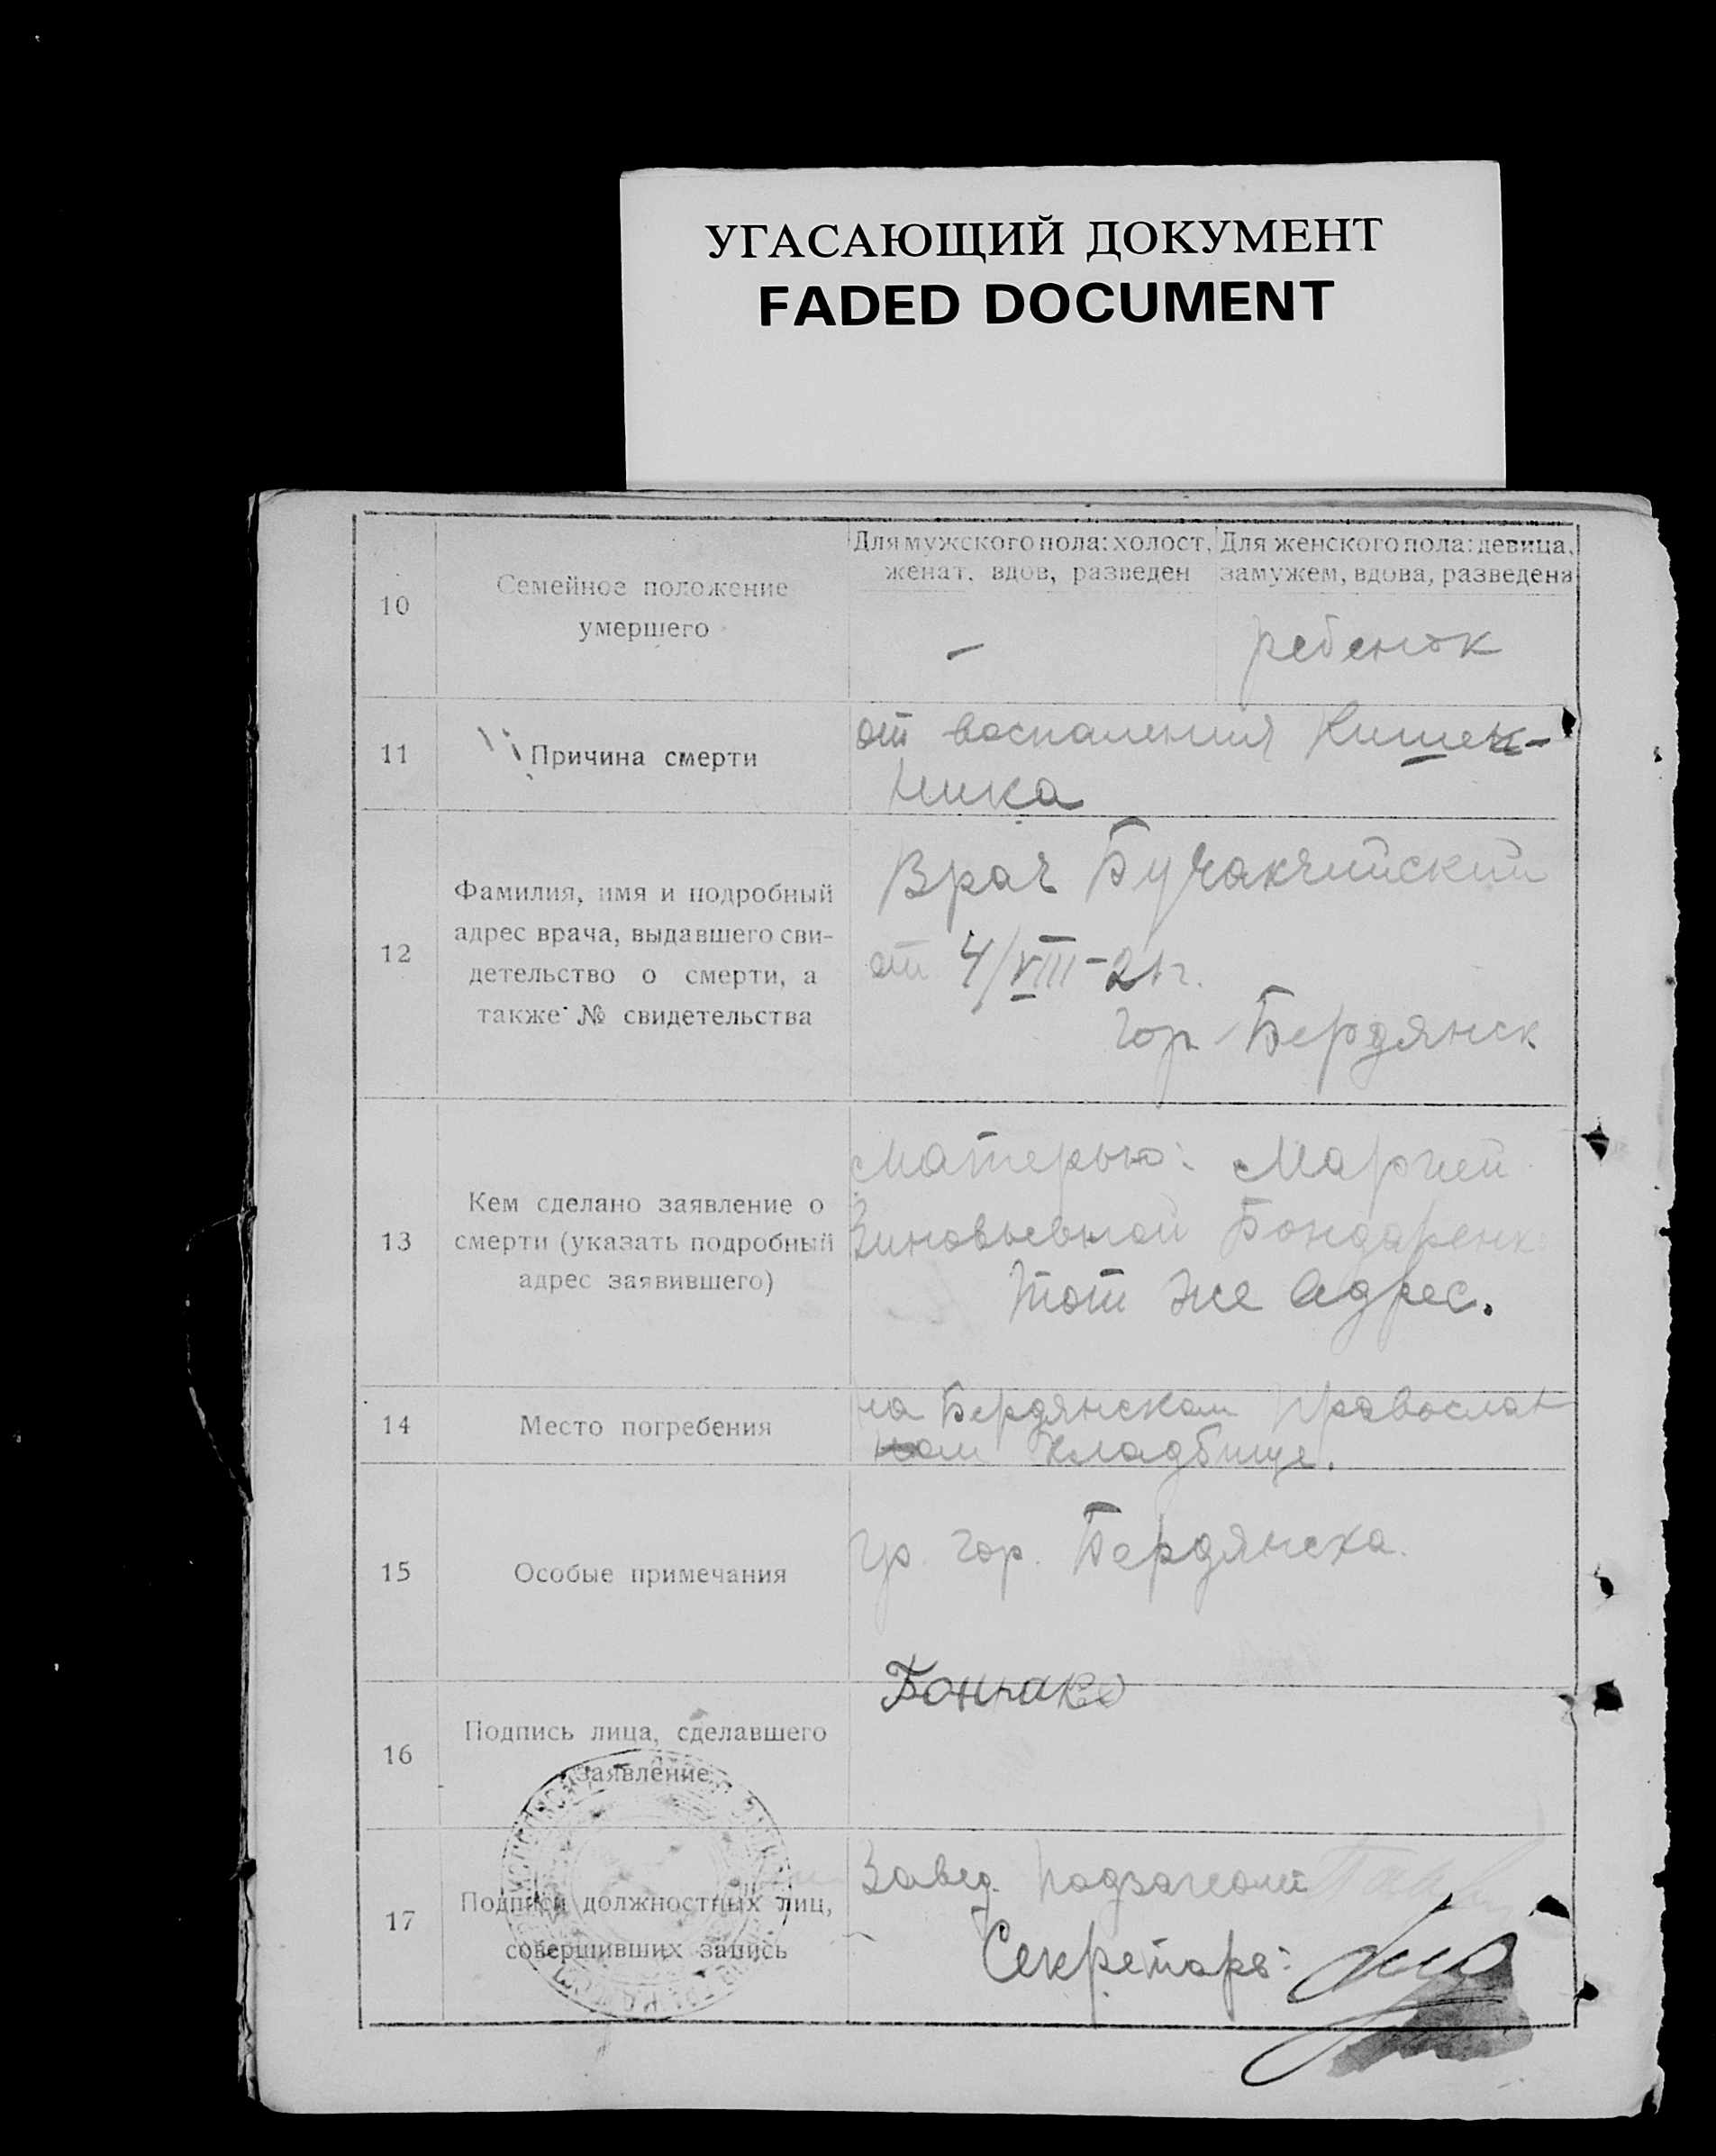 УГАСАЮЩИЙ ДОКУМЕНТ
FADED DOCUMENT
10
Семейное положение
умершего
Для мужского пола: холост,
женат, вдов, разведен
Для женского пола: девица,
замужем, вдова, разведена
—
ребенок
11
Причина смерти
от воспаления кишеч-
ника
12
Фамилия, имя и подробный
адрес врача, выдавшего сви-
детельство о смерти, а
также № свидетельства
Врач Бучакчийский
от 4/VIII-21г.
гор. Бердянск
13
Кем сделано заявление о
смерти (указать подробный
адрес заявившего)
Матерью: Марией
Зиновьевной Бондаренк
тот же адрес.
14
Место погребения
на Бердянском православ
ном кладбище.
15
Особые примечания
гр. гор. Бердянска.
16
Подпись лица, сделавшего
заявление
17
Подписи должностных лиц,
совершивших запись
Завед. подзагсом
Секретарь: